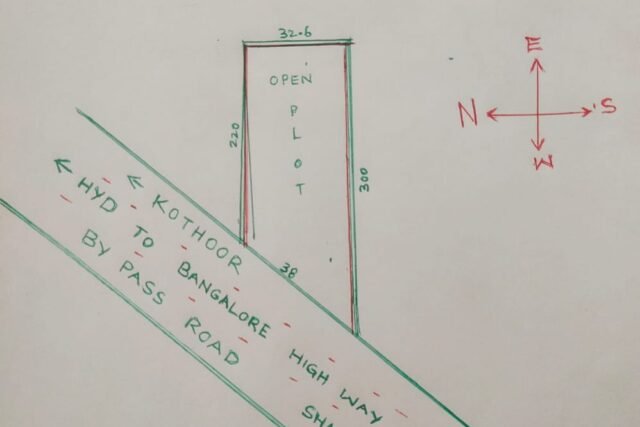 32.6
OPEN
PLOT
220
300
38
E
N
S
W
← KOTHOOR
← HYD TO BANGALORE HIGH WAY
BY PASS ROAD